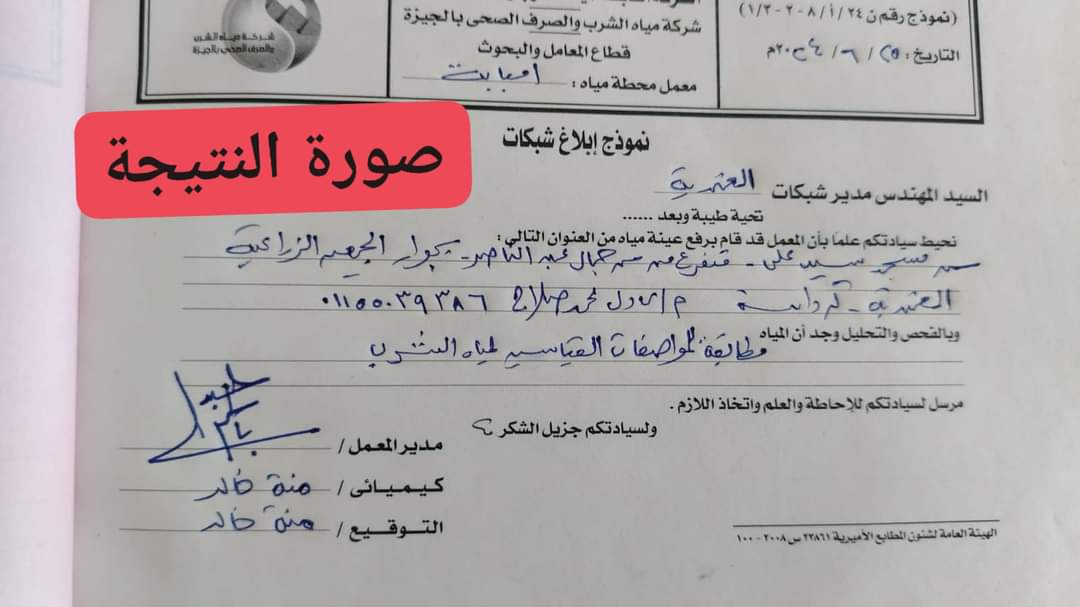 (نموذج رقم ن ٢٤/أ/٨-٢-١/٢)
شركة مياه الشرب والصرف الصحى بالجيزة
شركة مياه الشرب
والصرف الصحى بالجيزة
قطاع المعامل والبحوث
التاريخ: ٢٥/٦/٢٠٢٤م
معمل محطة مياه: امبابة
صورة النتيجة
نموذج إبلاغ شبكات
السيد المهندس مدير شبكات
تحية طيبة وبعد ......
نحيط سيادتكم علما بأن المعمل قد قام برفع عينة مياه من العنوان التالى:
ش مسجد سيد على - متفرع من ش جمال عبد الناصر - بجوار الجمعية الزراعية
كرداسة م/ عادل محمد صلاح ٠١١٥٥٠٣٩٣٨٦
وبالفحص والتحليل وجد أن المياه
مطابقة للمواصفات القياسية لمياه الشرب
مرسل لسيادتكم للإحاطة والعلم واتخاذ اللازم.
ولسيادتكم جزيل الشكر
مدير المعمل /
كيميائى / منة خالد
التوقيع / منة خالد
الهيئة العامة لشئون المطابع الأميرية ٢٣٨٦١ س ٢٠٠٨ - ١٠٠